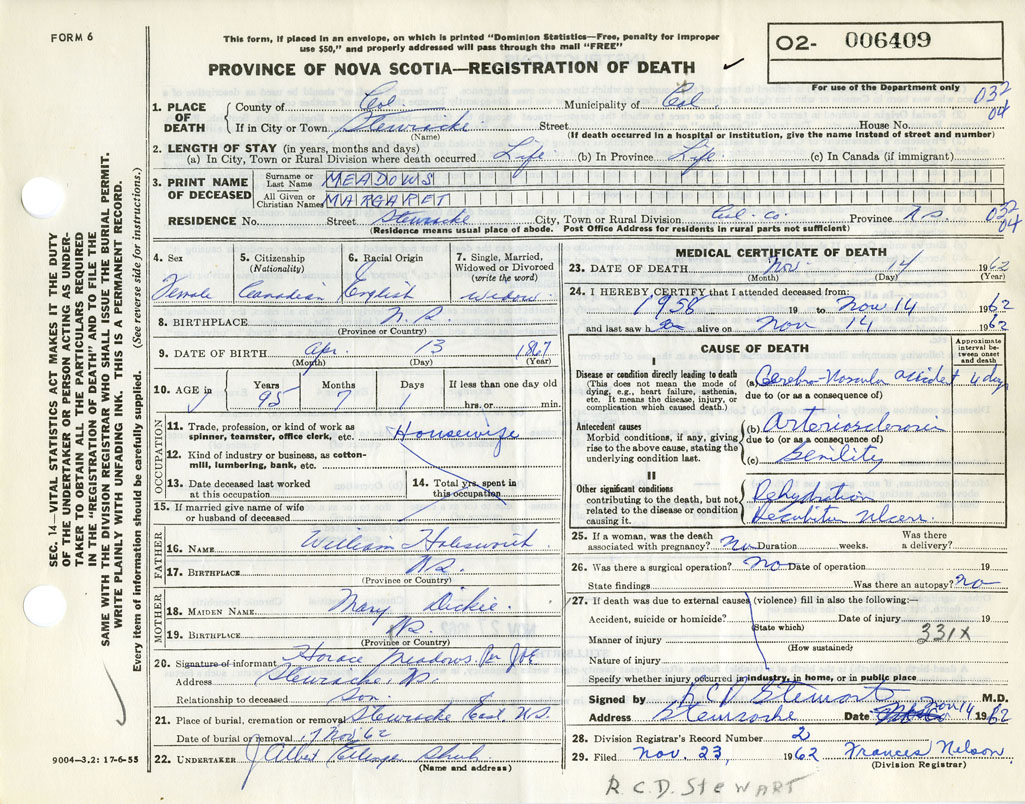 FORM 6
This form, if placed in an envelope, on which is printed "Dominion Statistics—Free, penalty for improper
use $50," and properly addressed will pass through the mail "FREE"
02- 006409
PROVINCE OF NOVA SCOTIA—REGISTRATION OF DEATH
For use of the Department only
1. PLACE OF DEATH
County of Col. Municipality of Col.
032
04
If in City or Town Stewiacke Street House No.
(Name) (If death occurred in a hospital or institution, give the name instead of street and number)
2. LENGTH OF STAY (in years, months and days)
(a) In City, Town or Rural Division where death occurred Life (b) In Province Life (c) In Canada (if immigrant)
3. PRINT NAME OF DECEASED
Surname or Last Name MEADOWS
All Given or Christian Names MARGARET
RESIDENCE No. Street Stewiacke City, Town or Rural Division Col. Co. Province N S
032
04
(Residence means usual place of abode. Post Office Address for residents in rural parts not sufficient)
4. Sex
Female
5. Citizenship
(Nationality)
Canadian
6. Racial Origin
English
7. Single, Married,
Widowed or Divorced
(write the word)
Widow
8. BIRTHPLACE N.S.
(Province or Country)
9. DATE OF BIRTH Apr. 13 1867
(Month) (Day) (Year)
10. AGE in Years Months Days If less than one day old
95 7 1 hrs. or min.
OCCUPATION
11. Trade, profession, or kind of work as
spinner, teamster, office clerk, etc. Housewife
12. Kind of industry or business, as cotton-
mill, lumbering, bank, etc.
13. Date deceased last worked
at this occupation
14. Total yrs. spent in
this occupation
15. If married give name of wife
or husband of deceased
FATHER
16. NAME William
17. BIRTHPLACE N.S.
(Province or Country)
MOTHER
18. MAIDEN NAME Mary Dickie.
19. BIRTHPLACE N.S.
(Province or Country)
20. Signature of informant Horace Meadows Per
Address Stewiacke, N.S.
Relationship to deceased Son.
21. Place of burial, cremation or removal Stewiacke East N.S.
Date of burial or removal 17 Nov 62
22. UNDERTAKER J Albert
(Name and address)
MEDICAL CERTIFICATE OF DEATH
23. DATE OF DEATH Nov. 14 1962
(Month) (Day) (Year)
24. I HEREBY CERTIFY that I attended deceased from:
1958 19 to Nov 14 1962
and last saw h er alive on Nov 14 1962
CAUSE OF DEATH
Approximate
interval be-
tween onset
and death
I
Disease or condition directly leading to death
(This does not mean the mode of
dying, e.g., heart failure, asthenia,
etc. It means the disease, injury, or
complication which caused death.)
(a) Cerebro-Vascular accident 4 days
due to (or as a consequence of)
Antecedent causes
Morbid conditions, if any, giving
rise to the above cause, stating the
underlying condition last.
(b) Arteriosclerosis
due to (or as a consequence of)
(c) Senility
II
Other significant conditions
contributing to the death, but not
related to the disease or condition
causing it.
Dehydration
Decubitus Ulcers.
25. If a woman, was the death
associated with pregnancy? No Duration weeks. Was there
a delivery?
26. Was there a surgical operation? No Date of operation 19
State findings Was there an autopsy? no
27. If death was due to external causes (violence) fill in also the following:—
Accident, suicide or homicide? Date of injury 19
(State which)
331X
Manner of injury
(How sustained)
Nature of injury
Specify whether injury occurred in industry, in home, or in public place
Signed by RCD Stewart M.D.
Address Stewiacke Date Nov 14 1962
28. Division Registrar's Record Number 2
29. Filed Nov. 23, 1962 Frances Nelson.
(Division Registrar)
R.C.D. STEWART
SEC. 14—VITAL STATISTICS ACT MAKES IT THE DUTY
OF THE UNDERTAKER OR PERSON ACTING AS UNDER-
TAKER TO OBTAIN ALL THE PARTICULARS REQUIRED
IN THE "REGISTRATION OF DEATH" AND TO FILE THE
SAME WITH THE DIVISION REGISTRAR WHO SHALL ISSUE THE BURIAL PERMIT.
WRITE PLAINLY WITH UNFADING INK. THIS IS A PERMANENT RECORD.
Every item of information should be carefully supplied. (See reverse side for instructions.)
9004—3.2: 17-6-55